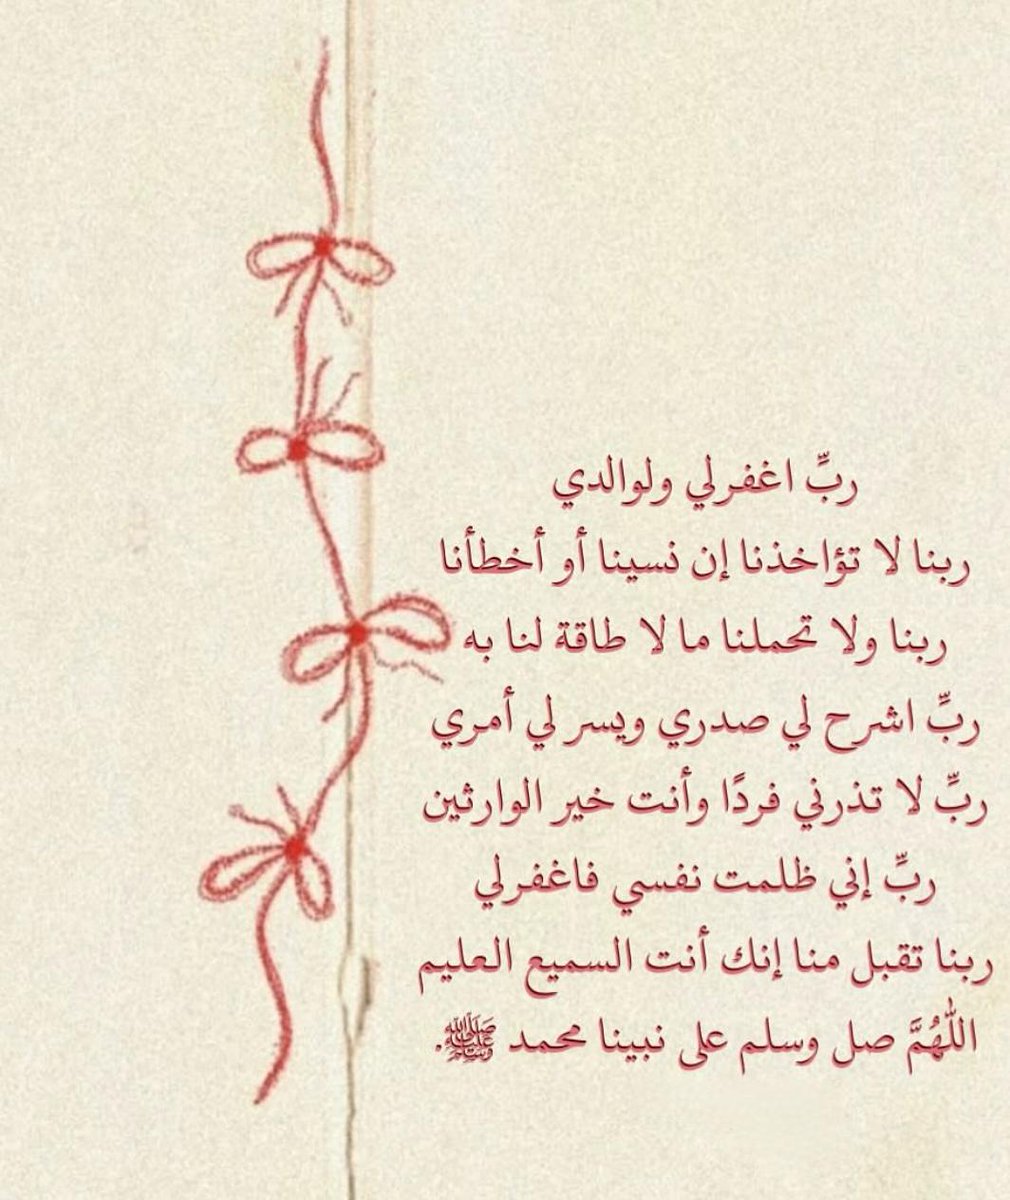 ربِّ اغفرلي ولوالدي
ربنا لا تؤاخذنا إن نسينا أو أخطأنا
ربنا ولا تحملنا ما لا طاقة لنا به
ربِّ اشرح لي صدري ويسر لي أمري
ربِّ لا تذرني فردًا وأنت خير الوارثين
ربِّ إني ظلمت نفسي فاغفرلي
ربنا تقبل منا إنك أنت السميع العليم
اللَّهُمَّ صل وسلم على نبينا محمد ﷺ.